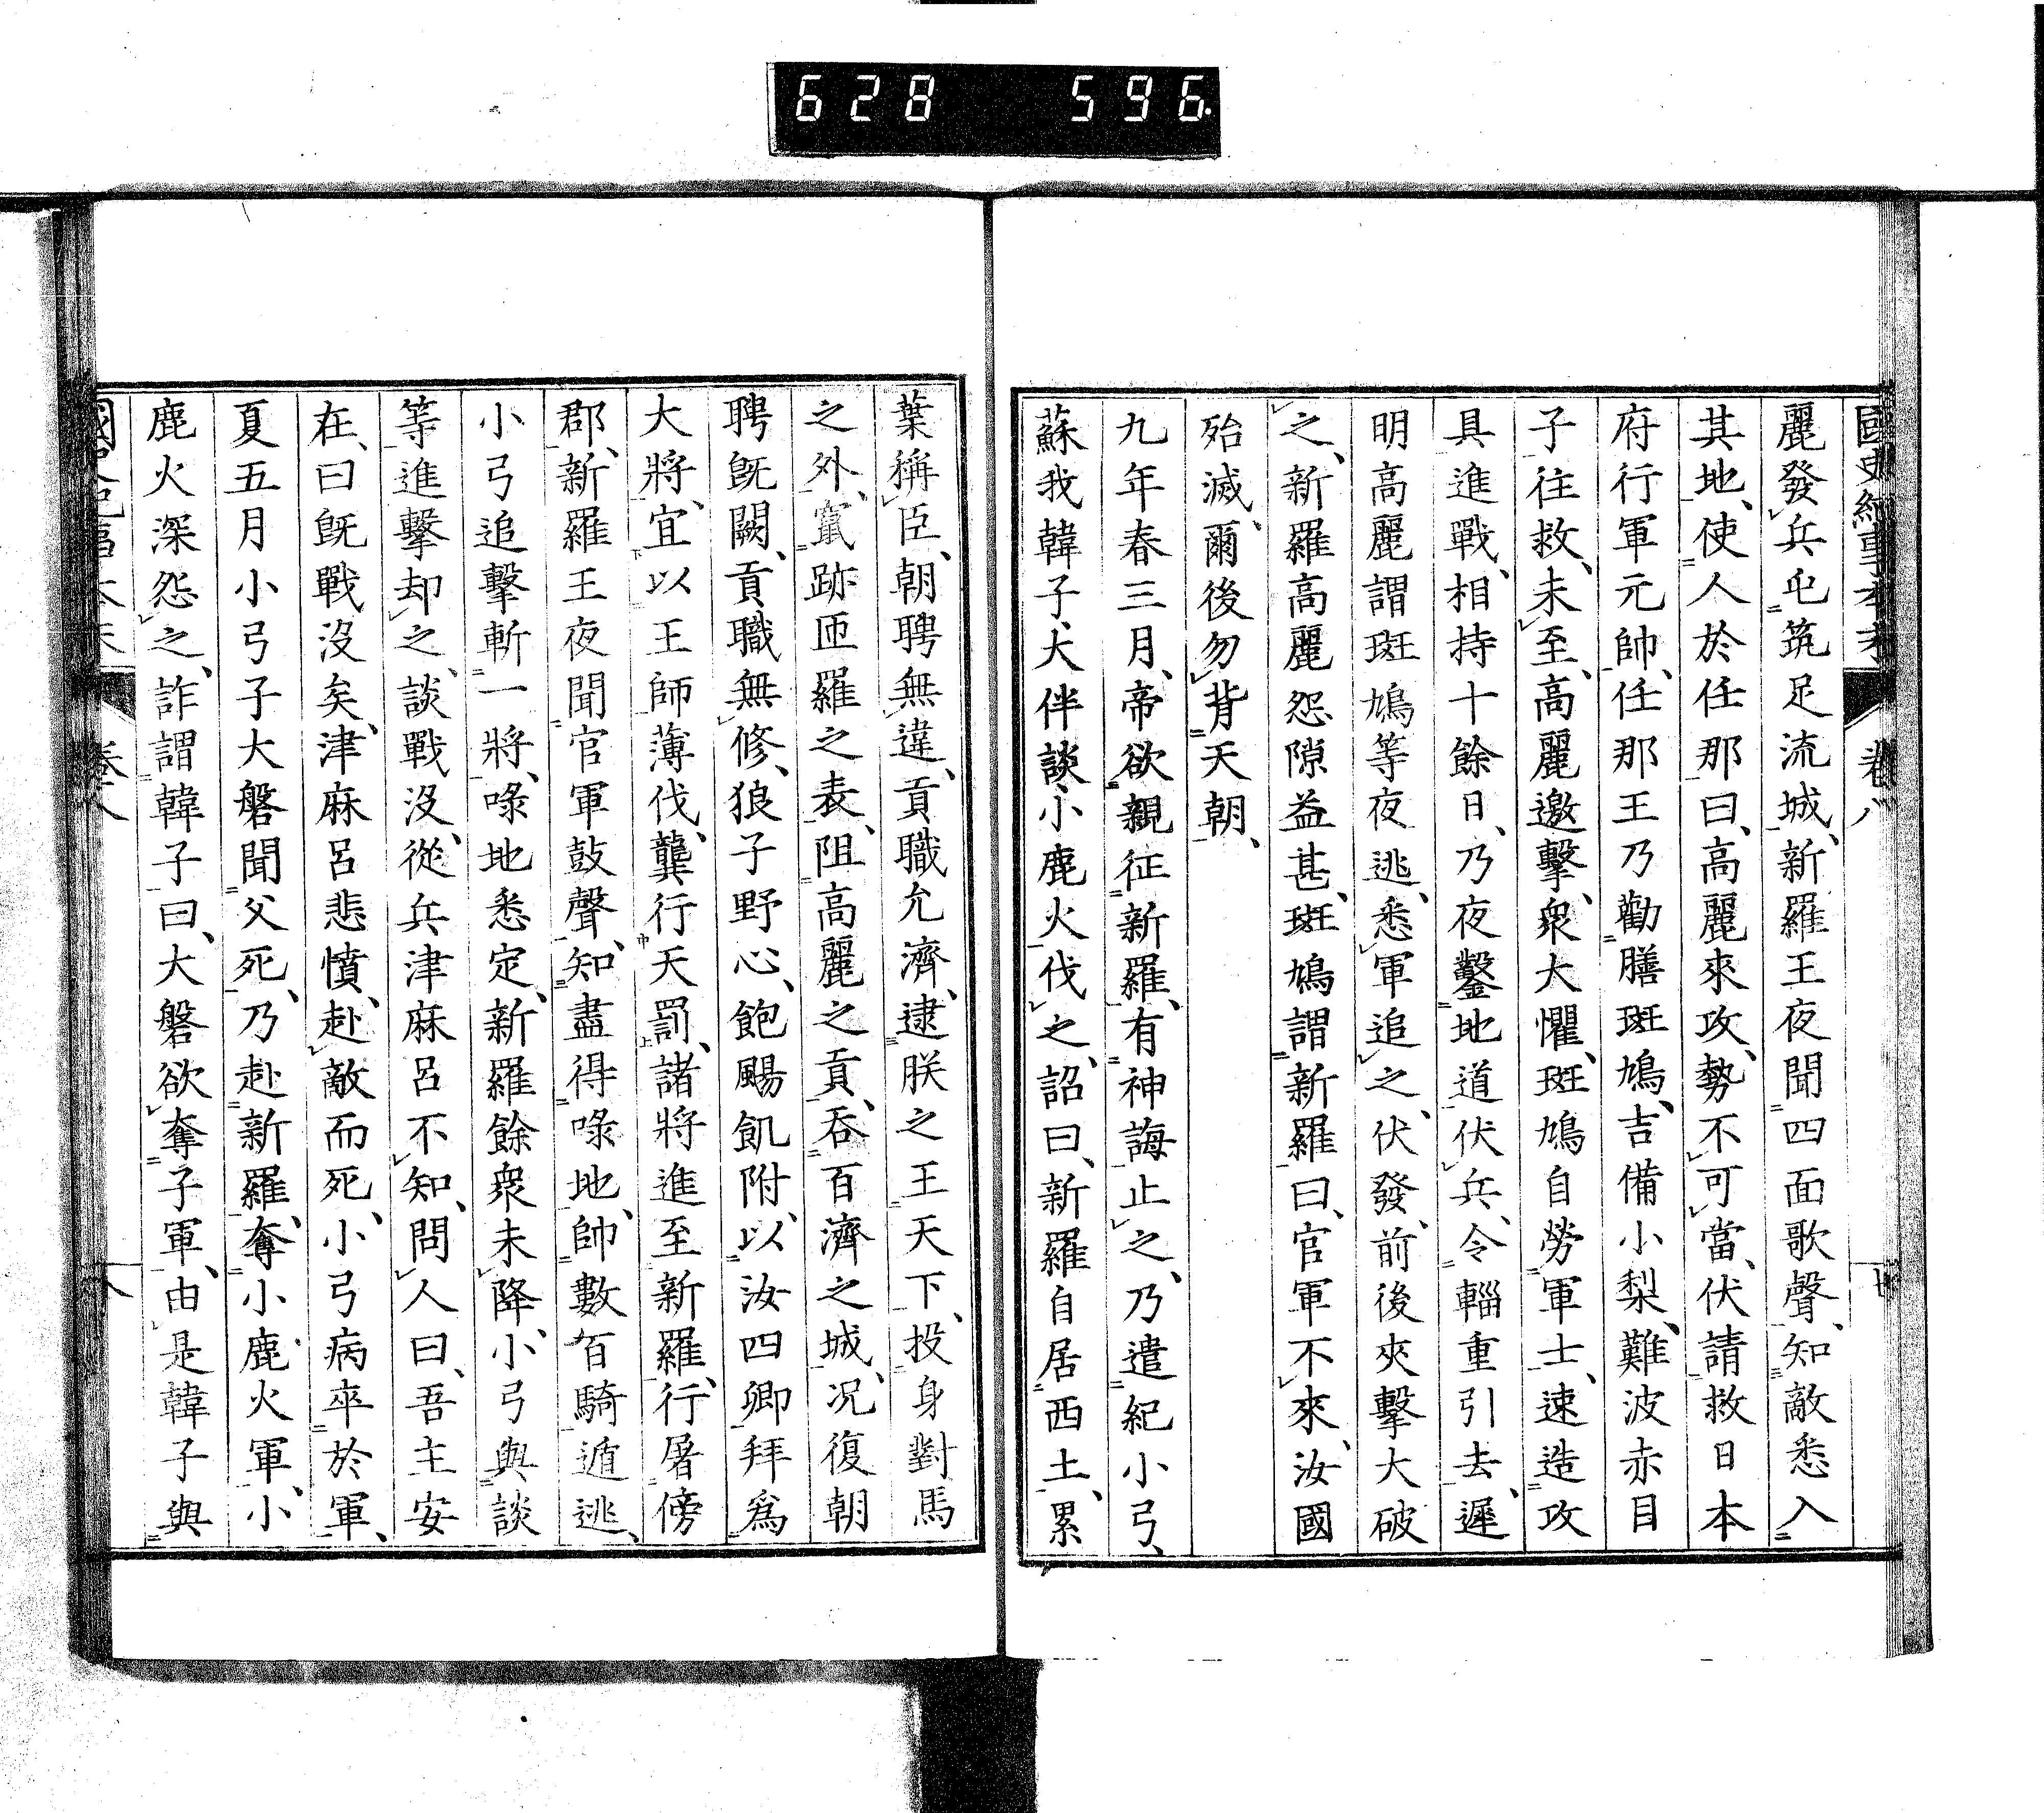 628 596.
麗發兵屯筑足流城、新羅王夜聞四面歌聲、知敵悉入
其地、使人於任那曰、高麗來攻、勢不可當、伏請救日本
府行軍元帥、任那王乃勸膳斑鳩、吉備小梨、難波赤目
子往救、未至、高麗邀擊、衆大懼、斑鳩自勞軍士、速造攻
具進戰、相持十餘日、乃夜鑿地道伏兵、令輜重引去、遲
明高麗謂斑鳩等夜逃、悉軍追之、伏發、前後夾擊大破
之、新羅高麗怨隙益甚、斑鳩謂新羅曰、官軍不來、汝國
殆滅、爾後勿背天朝、
九年春三月、帝欲親征新羅、有神誨止之、乃遣紀小弓、
蘇我韓子、大伴談、小鹿火伐之、詔曰、新羅自居西土、累
葉稱臣、朝聘無違、貢職允濟、逮朕之王天下、投身對馬
之外、竄跡匝羅之表、阻高麗之貢、吞百濟之城、况復朝
聘既闕、貢職無修、狼子野心、飽颺飢附、以汝四卿拜爲
大將、宜以王師薄伐、龔行天罰、諸將進至新羅、行屠傍
郡、新羅王夜聞官軍鼓聲、知盡得㖨地、帥數百騎遁逃、
小弓追擊斬一將、㖨地悉定、新羅餘衆未降、小弓與談
等進擊却之、談戰沒、從兵津麻呂不知、問人曰、吾主安
在、曰既戰沒矣、津麻呂悲憤、赴敵而死、小弓病卒於軍、
夏五月小弓子大磐聞父死、乃赴新羅、奪小鹿火軍、小
鹿火深怨之、詐謂韓子曰、大磐欲奪子軍、由是韓子與